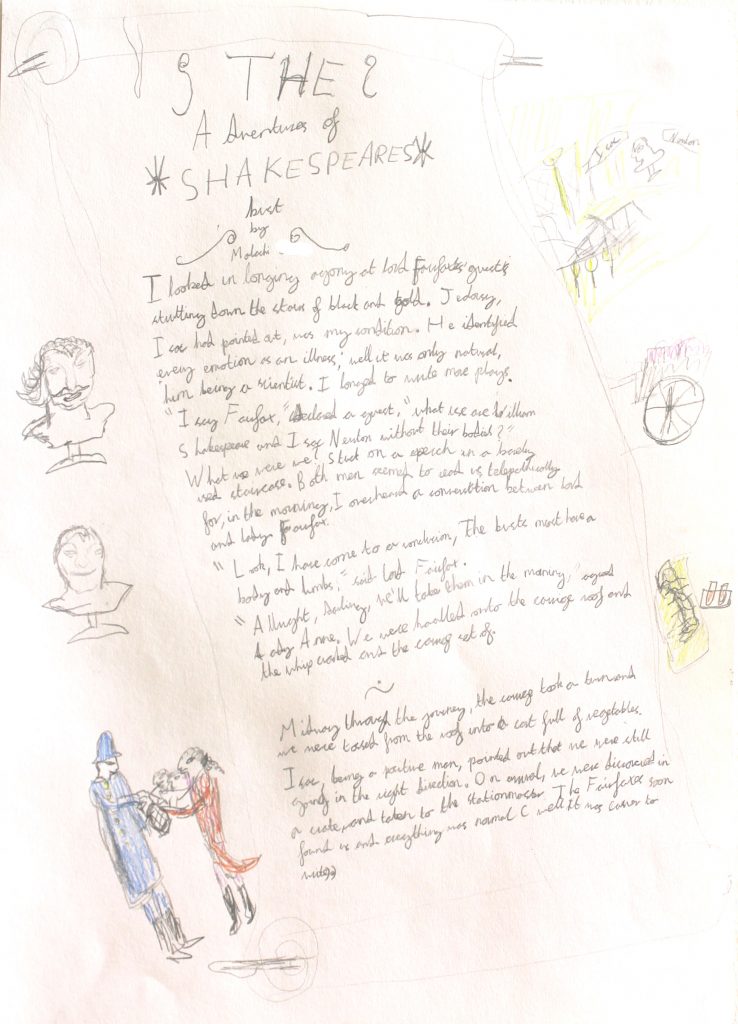 THE
Adventures of
SHAKESPEARES
bust
by
Malachi
I looked in longing agony at lord Fairfax's guests
strutting down the stairs of black and gold. Jealousy,
Isac had pointed out, was my condition. He identified
every emotion as an illness; well it was only natural,
him being a scientist. I longed to write more plays.
"I say Fairfax," declared a guest, "what use are William
Shakespeare and Isac Newton without their bodies?"
What use were we, stuck on a in a barely
used staircase. Both men seemed to read us telepathically
for, in the morning, I overheard a conversation between lord
and lady Fairfax.
"Look, I have come to a conclusion, The busts must have a
body and limbs," said lord Fairfax.
"Allright, darling, we'll take them in the morning," agreed
Lady Anne. We were handled onto the carriage roof and
the whip cracked and the carriage set of.
~
Midway through the journey, the carriage took a turn and
we were tossed from the roof into a cart full of vegetables.
Isac, being a positive man, pointed out that we were still
going in the right direction. On arrival, we were discovered in
a crate and taken to the stationmaster. The Fairfaxes soon
found us and everything was normal (well it was easier to
write))
Isac
Newton